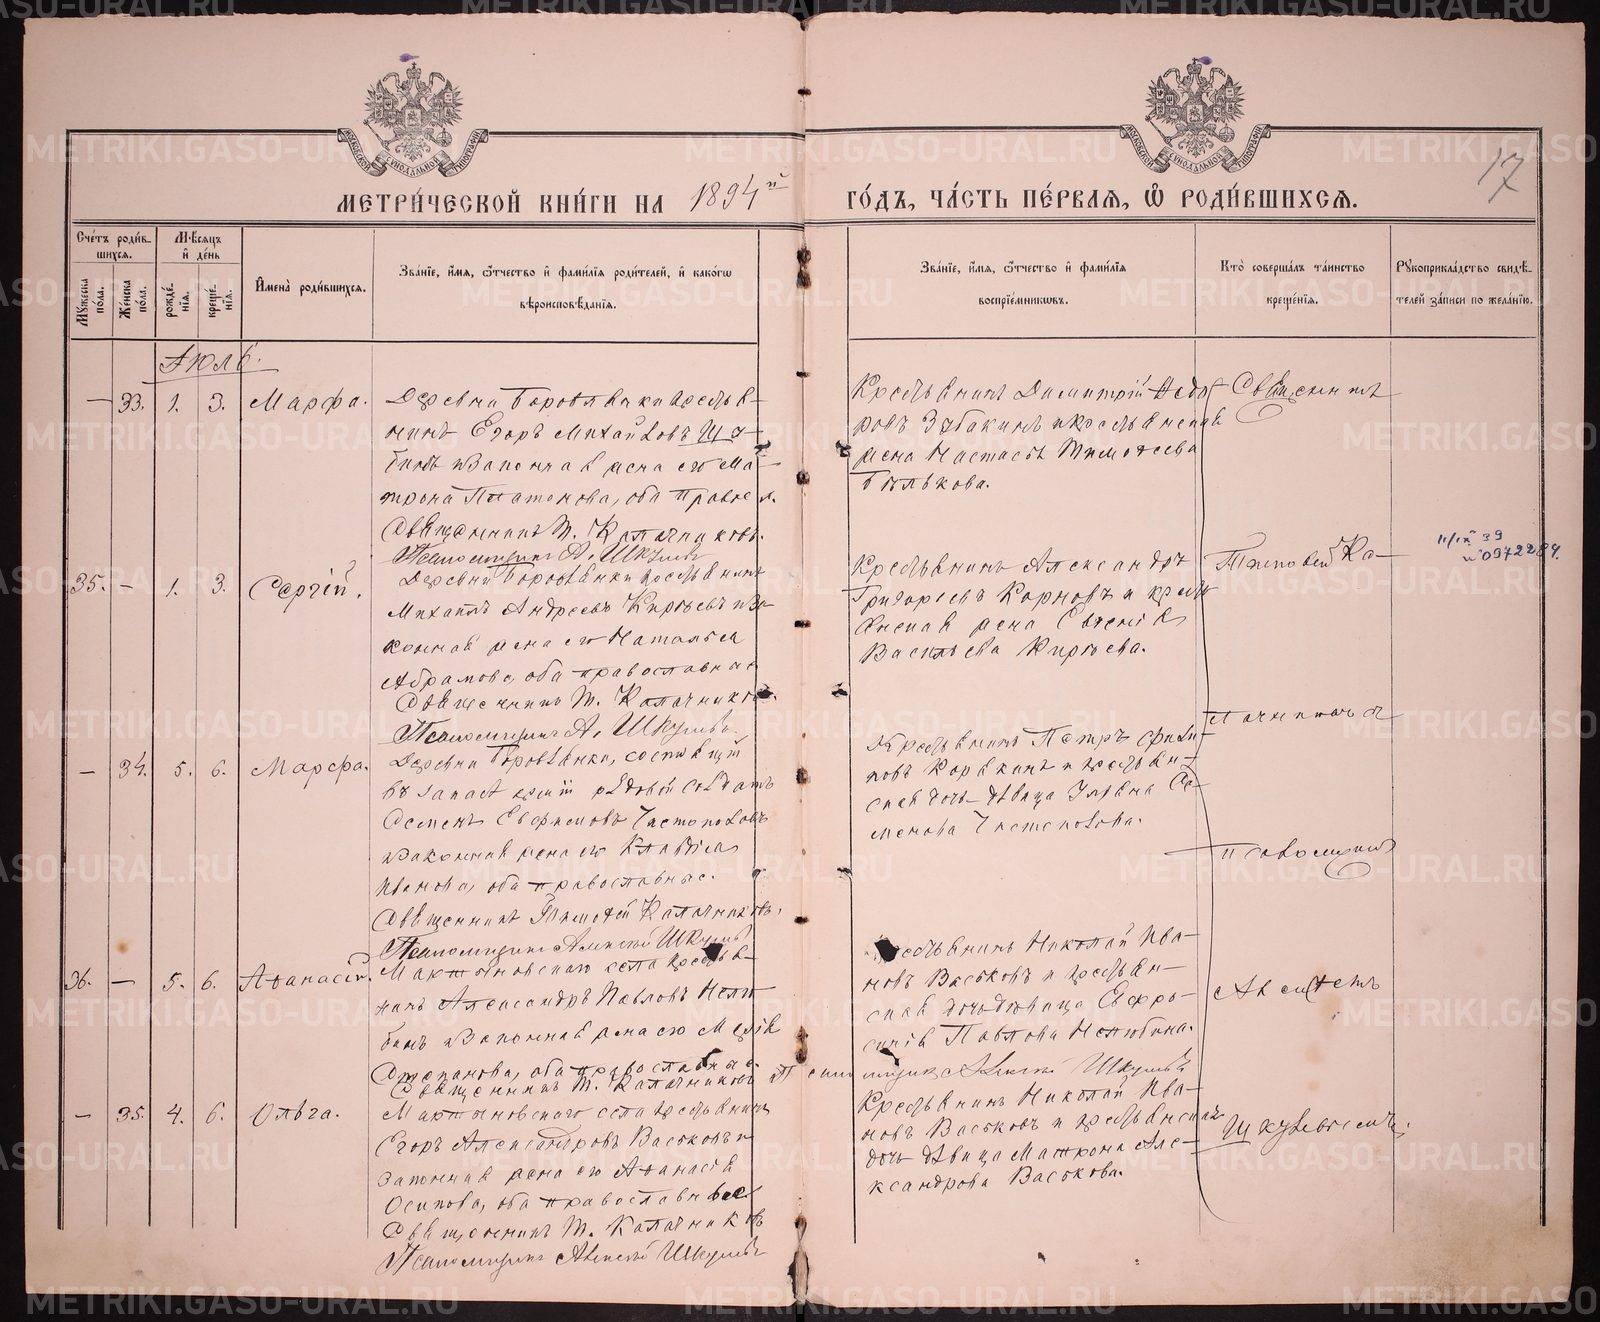 МЕТРИ́ЧЕСКОЙ КНИ́ГИ НА 1894 й ГО́ДЪ, ЧА́СТЬ ПЕ́РВАЯ, Ѡ РОДИ́ВШИХСЯ.
17
Сче́тъ роди́в-
шихся.
Мꙋжеска пола.
Же́нска по́ла.
Мѣ́сяцъ
и҆ де́нь
рожде́нїѧ.
креще́нїѧ.
И҆мена̀ роди́вшихся.
Зва́нїе, и҆́мя, ѻ҆́тчество и҆ фами́лїя роди́телей, и҆ како́гѡ
вѣроисповѣ́данїя.
Зва́нїе, и҆́мя, ѻ҆́тчество и҆ фами́лїя
воспрїе́мниковъ.
Кто̀ соверша́лъ та́инство
креще́нїя.
Рꙋкоприкла́дство свидѣ́-
телей за́писи по жела́нїю.
Іюль.
— 33. 1. 3. Марѳа.
Деревни Боровлянки крестья-
нинъ Егоръ Михайловъ
и законная жена его Ма-
трона Платонова, оба правосл.
Священникъ Т. Калачниковъ.
Псаломщикъ А. Шкулевъ
Крестьянинъ Димитрій Ѳедо-
ровъ Зубакинъ и крестьянская
жена Настасья Тимоѳеева
Бѣлькова.
Священникъ
35. — 1. 3. Сергій.
Деревни Боровлянки крестьянинъ
Михаилъ Андреевъ Киргѣевъ и за-
конная жена его Наталья
Абрамова, оба православные
Священникъ Т. Калачниковъ.
Псаломщикъ А. Шкулевъ.
Крестьянинъ Александръ
Григорьевъ Корновъ и кресть-
янская жена Евгенія
Васильева Киргѣева.
Тимоѳей Ка-
11/IX 39
№ 0972284.
— 34. 5. 6. Марѳа.
Деревни Боровлянки, состоящій
въ запасѣ арміи рядовой солдатъ
Семенъ Евфимовъ Чистополовъ
и законная жена его Клавдія
Иванова, оба православные.
Священникъ Тимоѳей Калачниковъ.
Псаломщикъ Алексѣй Шкулевъ
Крестьянинъ Петръ Филип-
повъ Корякинъ и крестьян-
ская дочь-дѣвица Ульяна Се-
менова Чистополова.
лачниковъ съ
псаломщик
36. — 5. 6. Аѳанасій.
Мартыновскаго села крестья-
нинъ Александръ Павловъ Нелю-
бинъ и законная жена его Марія
Степанова, оба православные.
Священникъ Т. Калачниковъ Псаломщикъ Алексѣй Шкулевъ
Крестьянинъ Николай Ива-
новъ Васьковъ и крестьян-
ская дочь-дѣвица Евфро-
синія Павлова Нелюбина.
Алексѣемъ
— 35. 4. 6. Ольга.
Мартыновскаго села крестьянинъ
Егоръ Александровъ Васьковъ и
законная жена его Аѳанасія
Осипова, оба православные
Священникъ Т. Калачниковъ
Псаломщикъ Алексѣй Шкулевъ
Крестьянинъ Николай Ива-
новъ Васьковъ и крестьянская
дочь дѣвица Матрона Але-
ксандрова Васькова.
Шкулевымъ.